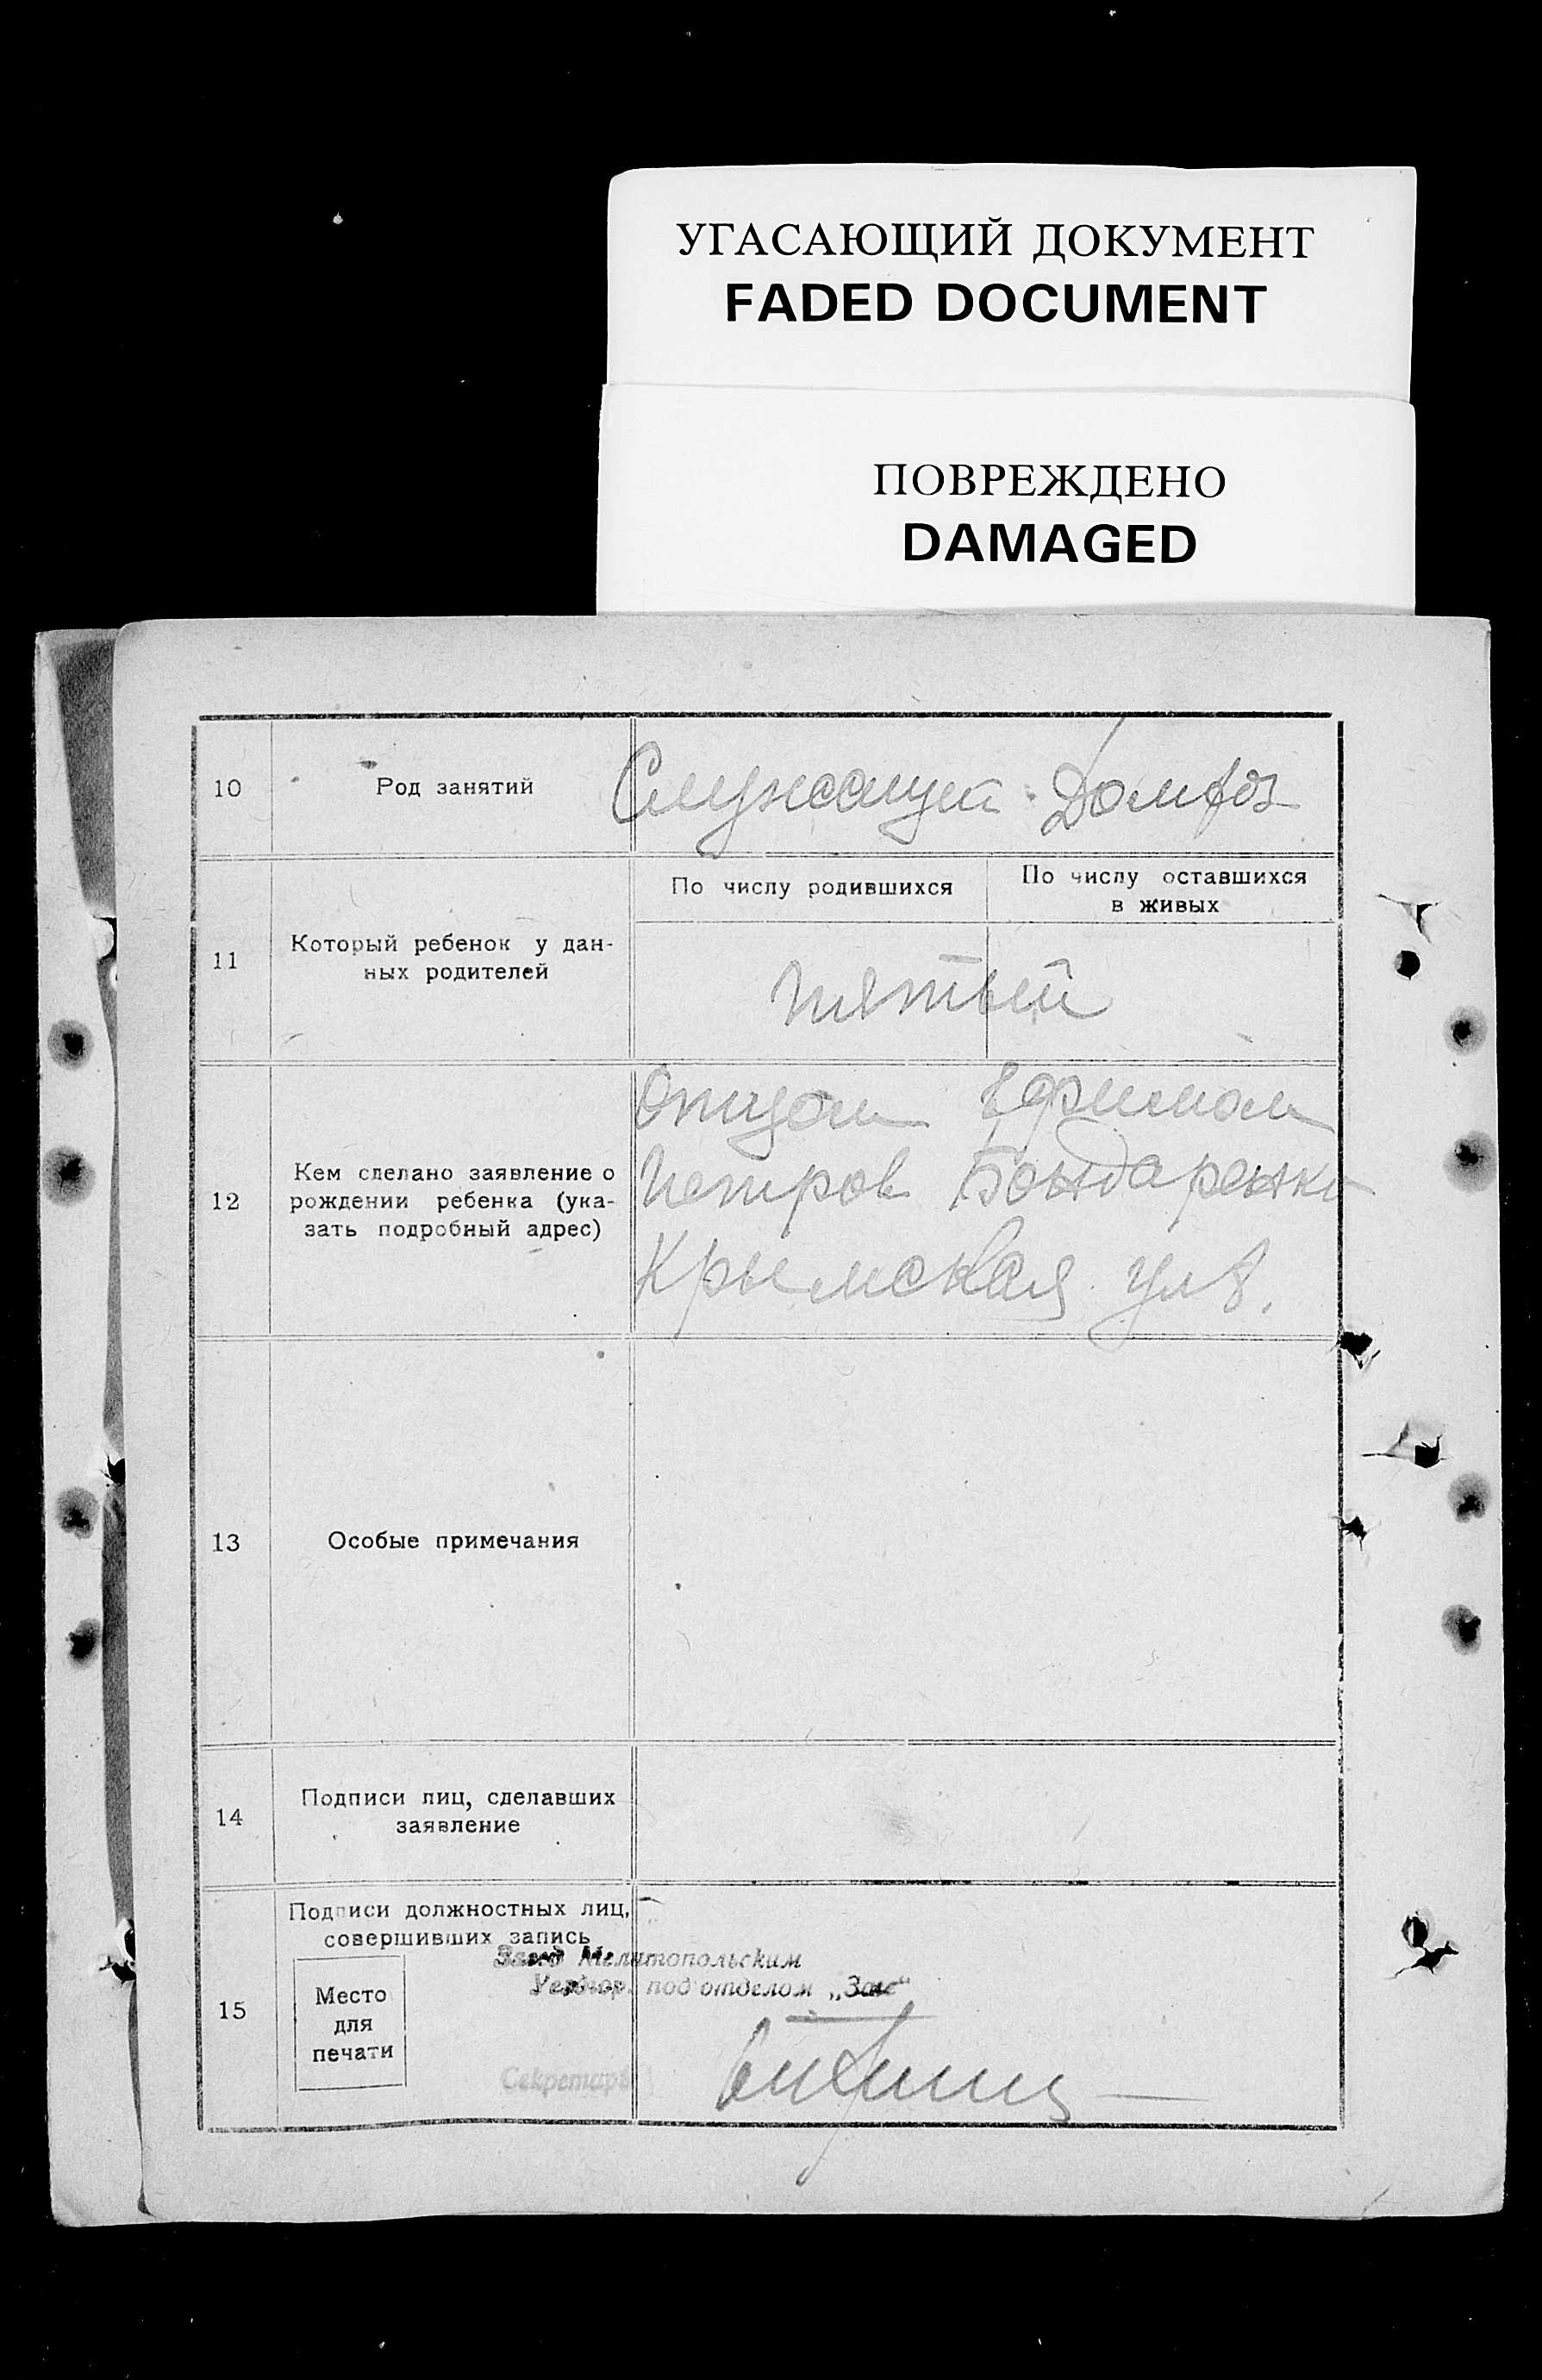 УГАСАЮЩИЙ ДОКУМЕНТ
FADED DOCUMENT
ПОВРЕЖДЕНО
DAMAGED
10
Род занятий
Служащий Домхоз
11
Который ребенок у дан-
ных родителей
По числу родившихся
По числу оставшихся
в живых
пятый
12
Кем сделано заявление о
рождении ребенка (ука-
зать подробный адрес)
отцом Ефимом
Петров Бондаренко
Крымская ул 8.
13
Особые примечания
14
Подписи лиц, сделавших
заявление
15
Подписи должностных лиц,
совершивших запись
Место
для
печати
Завед Мелитопольским
под отделом „Загс“
Секретарь